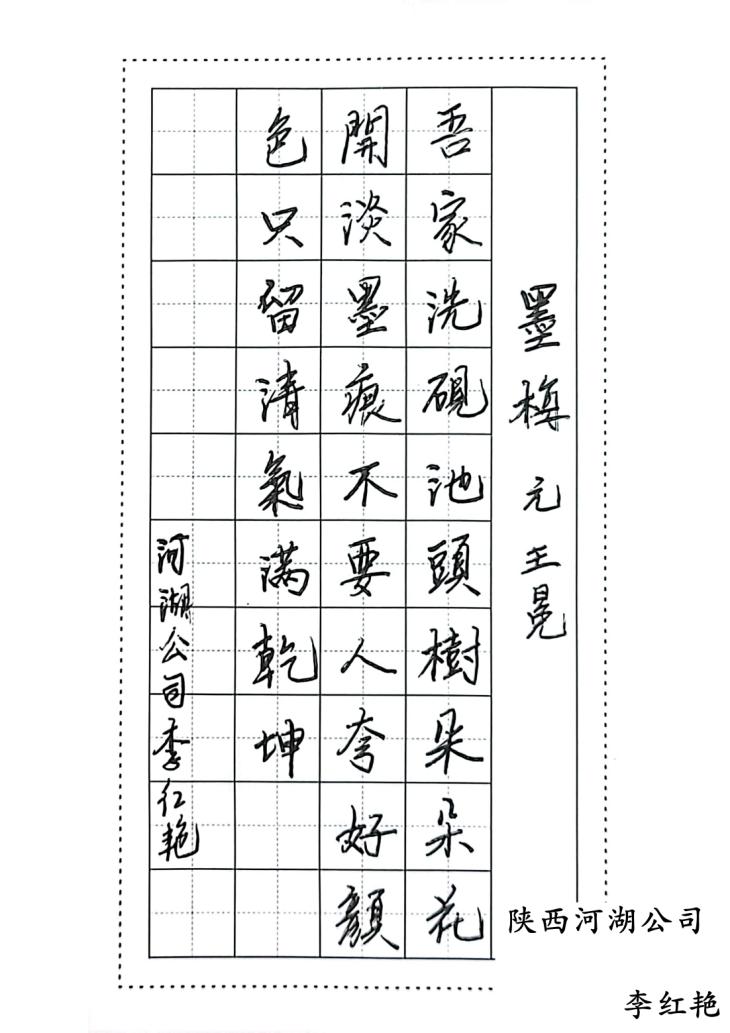 墨梅 元 王冕
吾家洗硯池頭樹朵朵花
開淡墨痕不要人夸好顏
色只留清氣滿乾坤
河湖公司李红艳
陕西河湖公司
李红艳